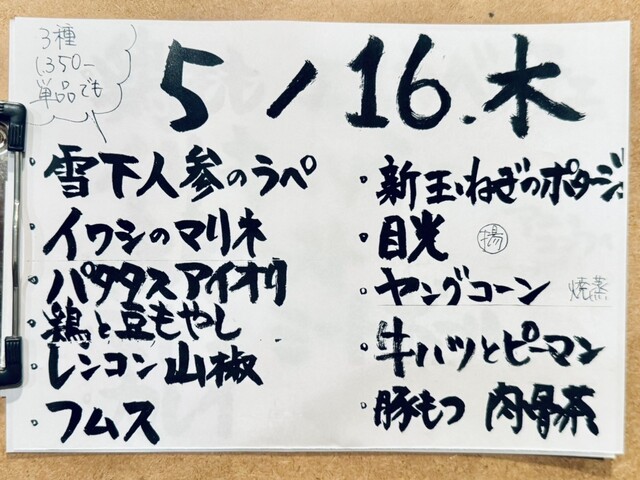 3種
1,350-
単品でも
5/16.木
・雪下人参のラペ
・イワシのマリネ
・パタタスアイオリ
・鶏と豆もやし
・レンコン山椒
・フムス
・新玉ねぎのポタージュ
・目光 ㊙揚
・ヤングコーン 焼蒸
・牛ハツとピーマン
・豚もつ 肉骨茶